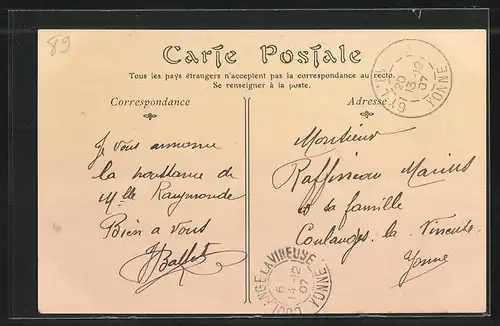 89
Carte Postale
Tous les pays étrangers n'acceptent pas la correspondance au recto.
Se renseigner à la poste.
Correspondance
Adresse
Je vous annonce
la naissance de
Mlle Raymonde
Bien a vous
JBallet
Monsieur
Raffineau Marius
et sa famille
Coulanges. la. Vineuse
Yonne
20
13-12
07
YONNE
COULANGE LA VINEUSE
6
14-12
07
YONNE